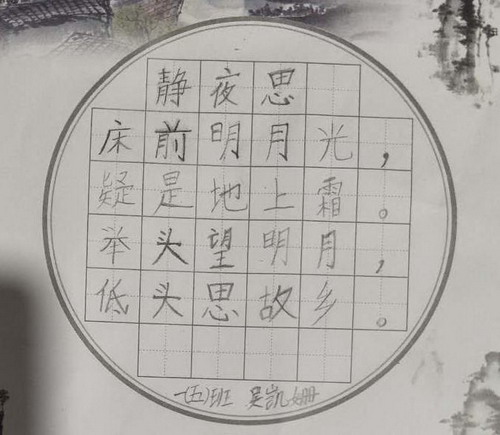 静夜思
床前明月光，
疑是地上霜。
举头望明月，
低头思故乡。
一(五)班 吴凯姗